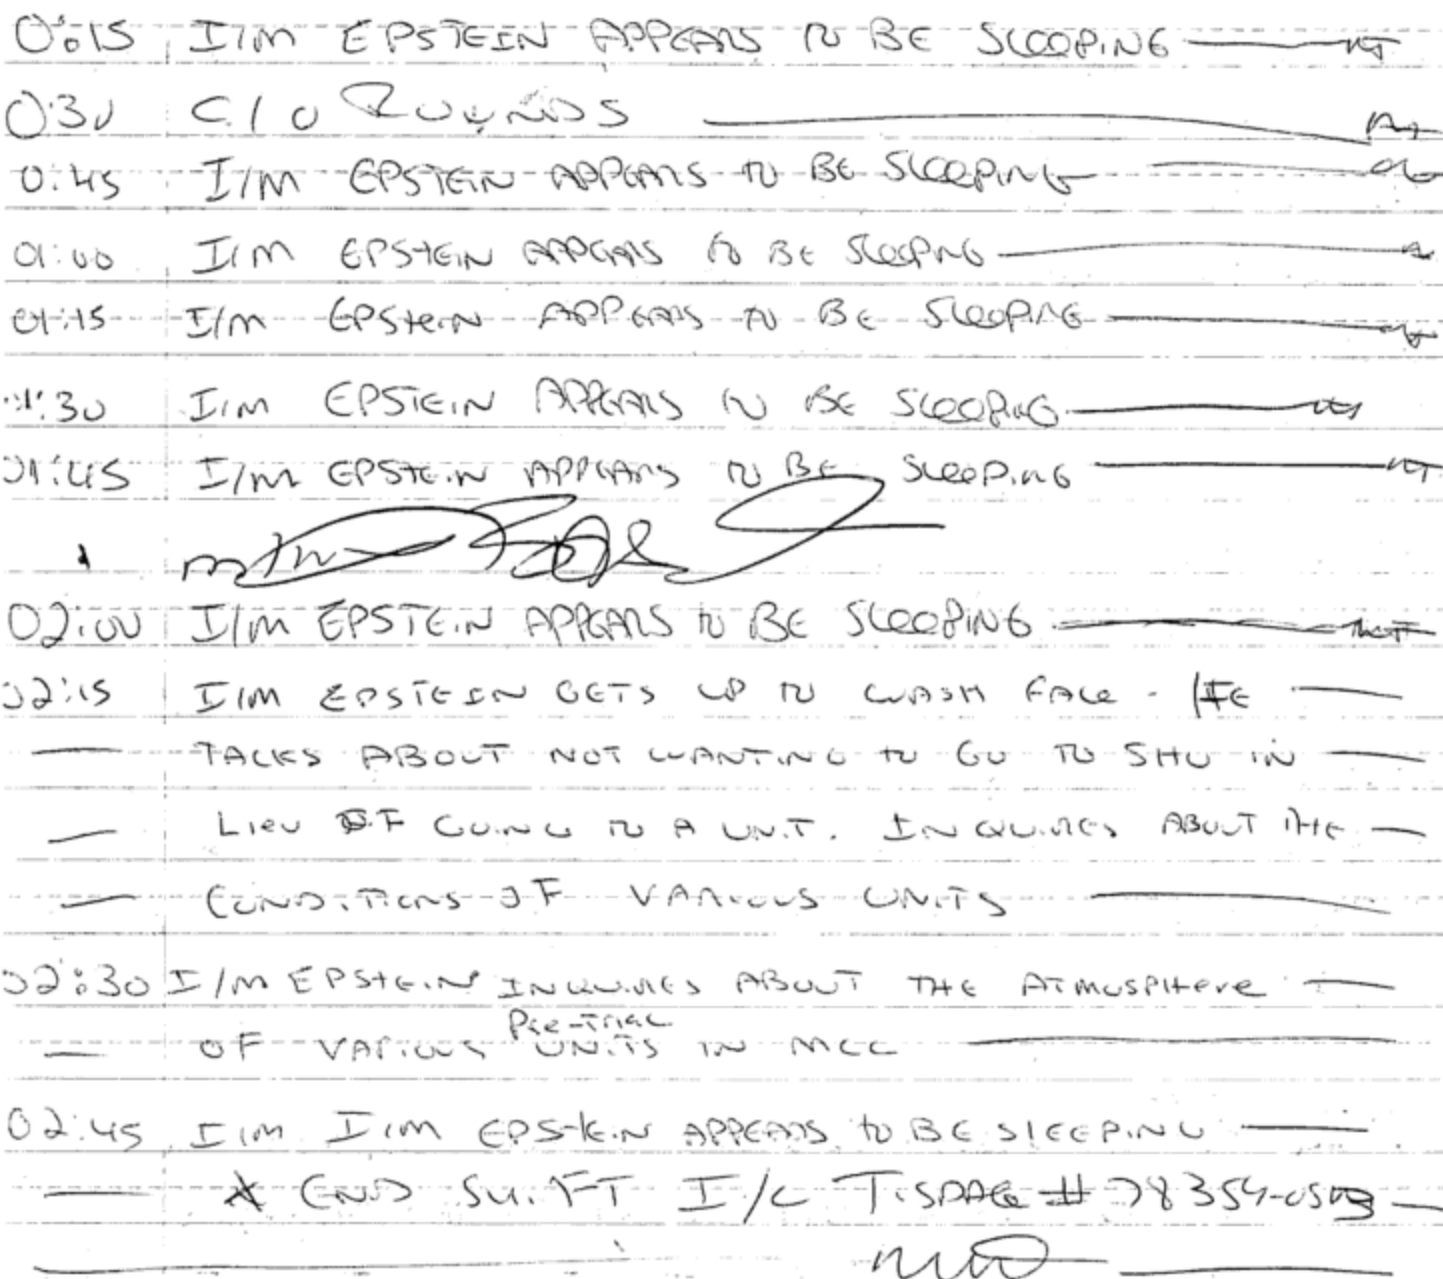 0:15 I/M EPSTEIN APPEARS TO BE SLEEPING
0:30 C/O ROUNDS
0:45 I/M EPSTEIN APPEARS TO BE SLEEPING
01:00 I/M EPSTEIN APPEARS TO BE SLEEPING
01:15 I/M EPSTEIN APPEARS TO BE SLEEPING
01:30 I/M EPSTEIN APPEARS TO BE SLEEPING
01:45 I/M EPSTEIN APPEARS TO BE SLEEPING
02:00 I/M EPSTEIN APPEARS TO BE SLEEPING
02:15 I/M EPSTEIN GETS UP TO WASH FACE - HE
TALKS ABOUT NOT WANTING TO GO TO SHU IN
LIEU OF GOING TO A UNIT. INQUIRES ABOUT THE
CONDITIONS OF VARIOUS UNITS
02:30 I/M EPSTEIN INQUIRES ABOUT THE ATMOSPHERE
OF VARIOUS PRE-TRIAL UNITS IN MCC
02:45 I/M I/M EPSTEIN APPEARS TO BE SLEEPING
* END SHIFT I/C #78354-